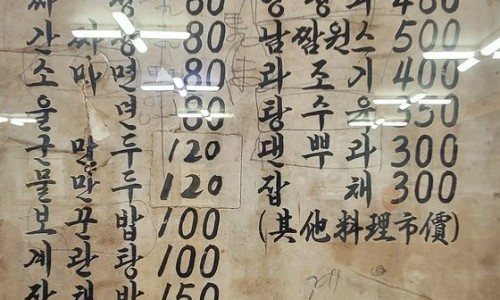 간 짜 장 80
소 마 면 80
울 면 80
군 만 두 120
물 만 두 120
보 꾸 밥 100
계 란 탕 100
잡 채 밥 150
남 짬 원 스 500
라 조 기 400
탕 수 육 350
댄 뿌 라 300
잡 채 300
(其他料理市價)